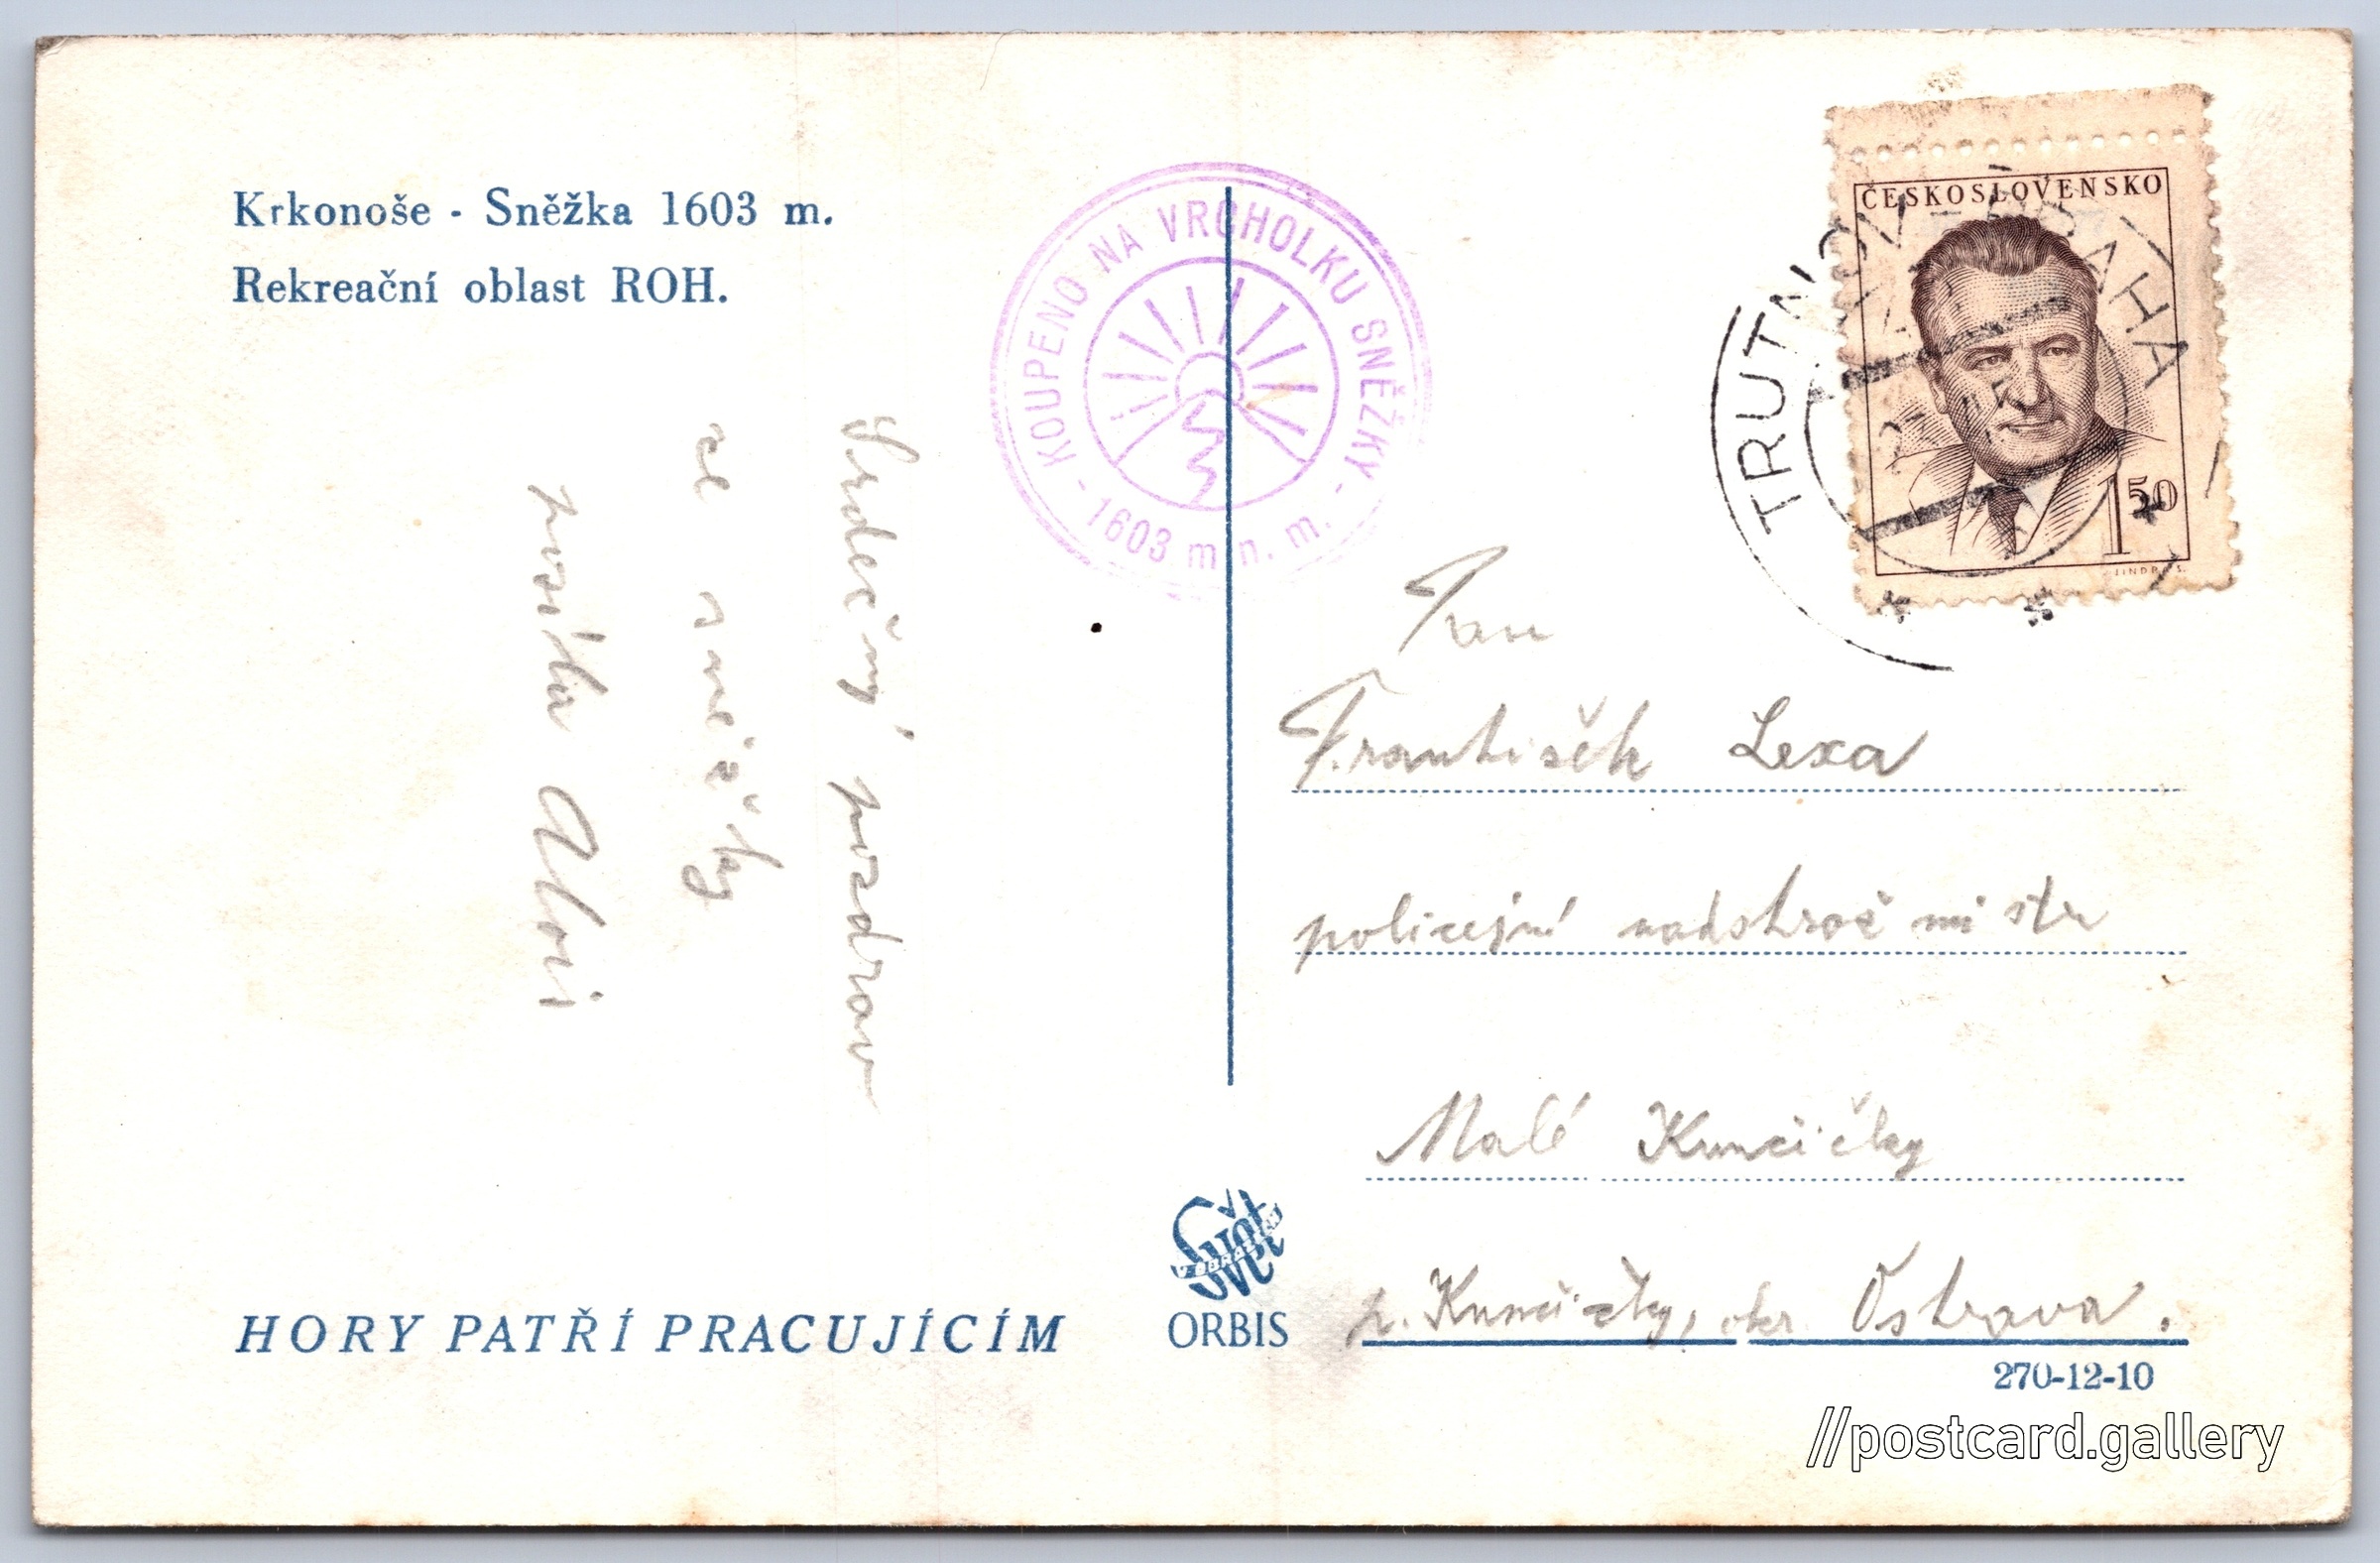 Krkonoše - Sněžka 1603 m.
Rekreační oblast ROH.
- KOUPENO NA VRCHOLKU SNĚŽKY -
1603 m n. m.
ČESKOSLOVENSKO
1 50
JINDRA S.
TRUTNOV - PRAHA
Srdečný pozdrav
ze sněžky
posílá Alois
Pan
František Lexa
policejní nadstrážmistr
Malé Kunčičky
p. Kunčičky, okr. Ostrava.
HORY PATŘÍ PRACUJÍCÍM
Svět
V OBRAZECH
ORBIS
270-12-10
//postcard.gallery